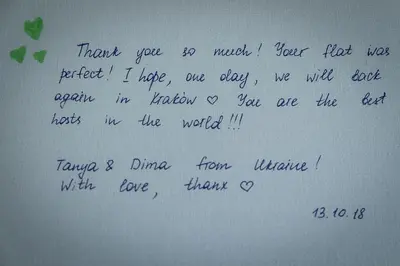 Thank you so much! Your flat was
perfect! I hope, one day, we will back
again in Kraków ♡ You are the best
hosts in the world!!!
Tanya & Dima from Ukraine!
With love, thanx ♡
13.10.18